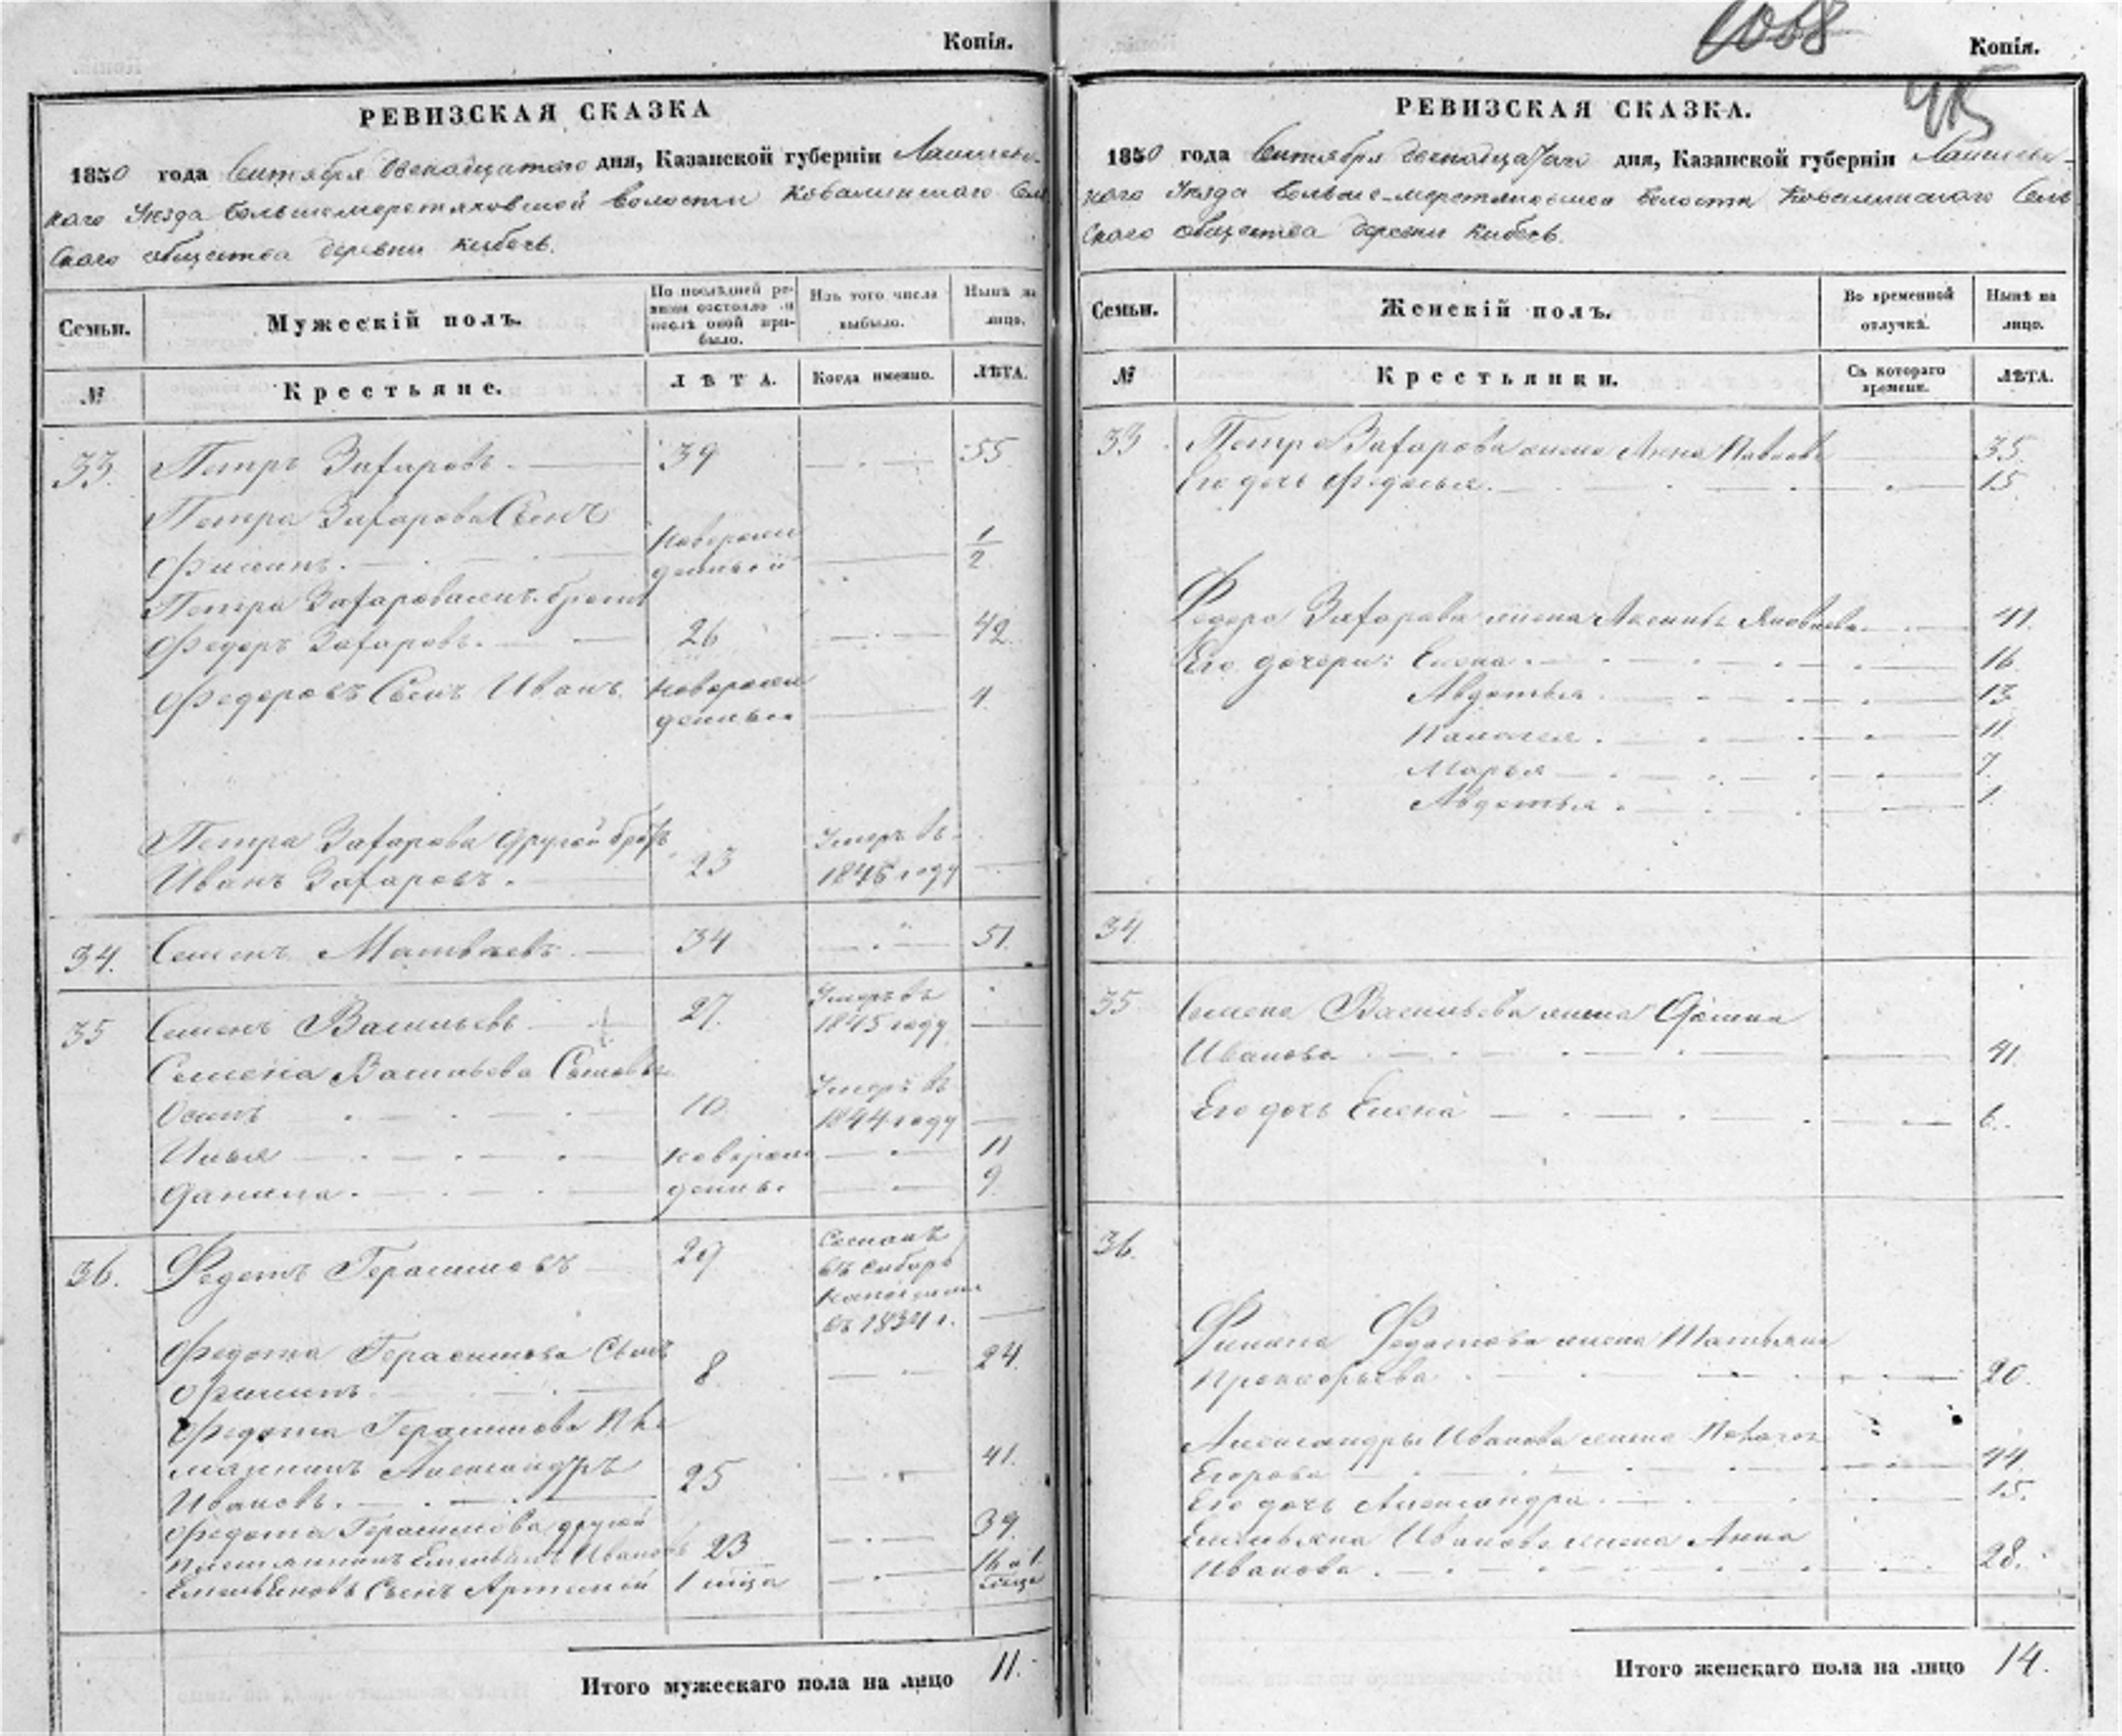 Копія.
РЕВИЗСКАЯ СКАЗКА
1850 года Сентября двенадцатого дня, Казанской губерніи Лаишевс-
каго Уезда Большемеретяковской волости Ковалинскаго Сель
скаго общества деревни Кибечь.
Семьи. Мужескій полъ. По послѣдней ревизіи состояло и послѣ оной прибыло. Изъ того числа выбыло. Нынѣ на лицо.
№ Крестьяне. ЛѢТА. Когда именно. ЛѢТА.
33. Петръ Захаровъ. 39 55
Петра Захарова Сынъ
Филипъ. новорож денной 1/2
Петра Захарова братъ
Федоръ Захаровъ. 26 42.
Федоровъ Сынъ Иванъ новорож денный 4.
Петра Захарова другой братъ
Иванъ Захаровъ. 23 Умеръ въ 1846 году
34. Семенъ Матвѣевъ 34 51.
35 Семенъ Васильевъ 27. Умеръ въ 1845 году
Семена Васильева Сыновья
Осипъ 10. Умеръ въ 1844 году
Илья новорож 11
Данила. денные 9.
36. Федотъ Герасимовъ 29 Сосланъ въ Сибирь въ 1834 г.
Федота Герасимова Сынъ
Филипъ 8. 24.
Федота Герасимова Пле
мянникъ Александръ
Ивановъ. 25 41.
Федота Герасимова другой
племянникъ Емельянъ Ивановъ 23 39.
Емельяновъ Сынъ Артемій 1 мѣсца 16 и 1 месца
Итого мужескаго пола на лицо 11.
1058
Копія.
РЕВИЗСКАЯ СКАЗКА.
1850 года Сентября двенадцатаго дня, Казанской губерніи Лаишевс-
каго Уезда Больше-меретяковской волости Ковалинскаго Сель
скаго общества деревни Кибечь.
Семьи. Женскій полъ. Во временной отлучкѣ. Нынѣ на лицо.
№ Крестьянки. Съ котораго времени. ЛѢТА.
33 Петра Захарова жена Анна Павлова 35.
Его дочь Федосья. 15
Федора Захарова жена Яковлева 41.
Его дочери: Елена. 16.
Авдотья 13
Палагея. 11
Марья 7.
Авдотья. 1.
34.
35 Семена Васильева жена
Иванова 41.
Его дочь Елена 6.
36.
Филипа Федотова жена Татьяна
Прокофьева 20.
Александры Иванова жена
Егорова 44.
Его дочь Александра. 15.
Емельяна Иванова жена Анна
Иванова. 28.
Итого женскаго пола на лицо 14.